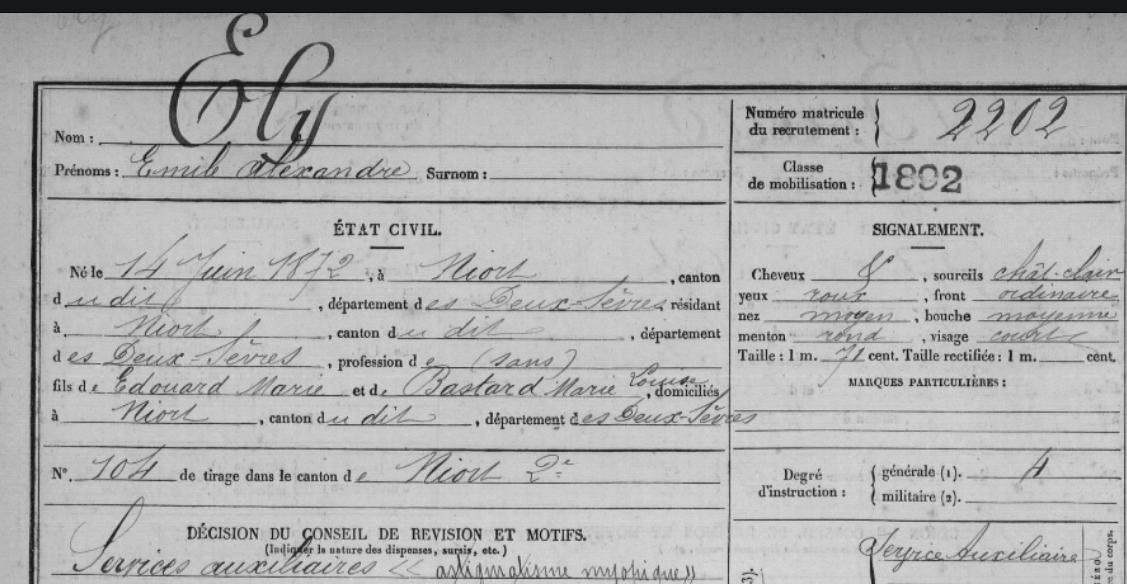 Nom : Ely
Prénoms : Emile Alexandre Surnom :
Numéro matricule
du recrutement : 2202
Classe
de mobilisation : 1892
ÉTAT CIVIL.
Né le 14 Juin 1872, à Niort, canton
dudit, département des Deux-Sèvres, résidant
à Niort, canton du dit, département
des Deux-Sèvres, profession de (sans)
fils de Edouard Marie et de Bastard Marie Louise, domiciliés
à Niort, canton du dit, département des Deux-Sèvres
SIGNALEMENT.
Cheveux &, sourcils chât-clair
yeux roux, front ordinaire
nez moyen, bouche moyenne
menton rond, visage court
Taille : 1 m. 71 cent. Taille rectifiée : 1 m. cent.
MARQUES PARTICULIÈRES :
N°. 104 de tirage dans le canton de Niort 2e
Degré
d'instruction :
générale (1). 4
militaire (2).
DÉCISION DU CONSEIL DE REVISION ET MOTIFS.
(Indiquer la nature des dispenses, sursis, etc.)
Services auxiliaires « astigmatisme myopique »
Service Auxiliaire
3).
du corps.